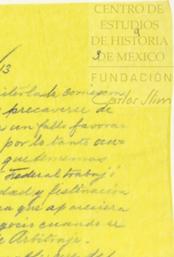 CENTRO DE
ESTUDIOS
9
DE HISTORIA
3
DE MEXICO
FUNDACIÓN
Carlos Slim
/3
precaverse de
un fallo favora
por lo tanto
que tememos
Federal trabajó
dad y festinación
ra que apareciera
gocio cuando se
de Arbitraje.